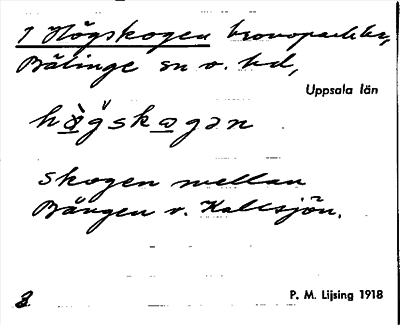 1 Högskogen kronopark,
Bälinge sn o. hd,
Uppsala län
skogen mellan
Bängen v. Kallsjön.
P. M. Lijsing 1918